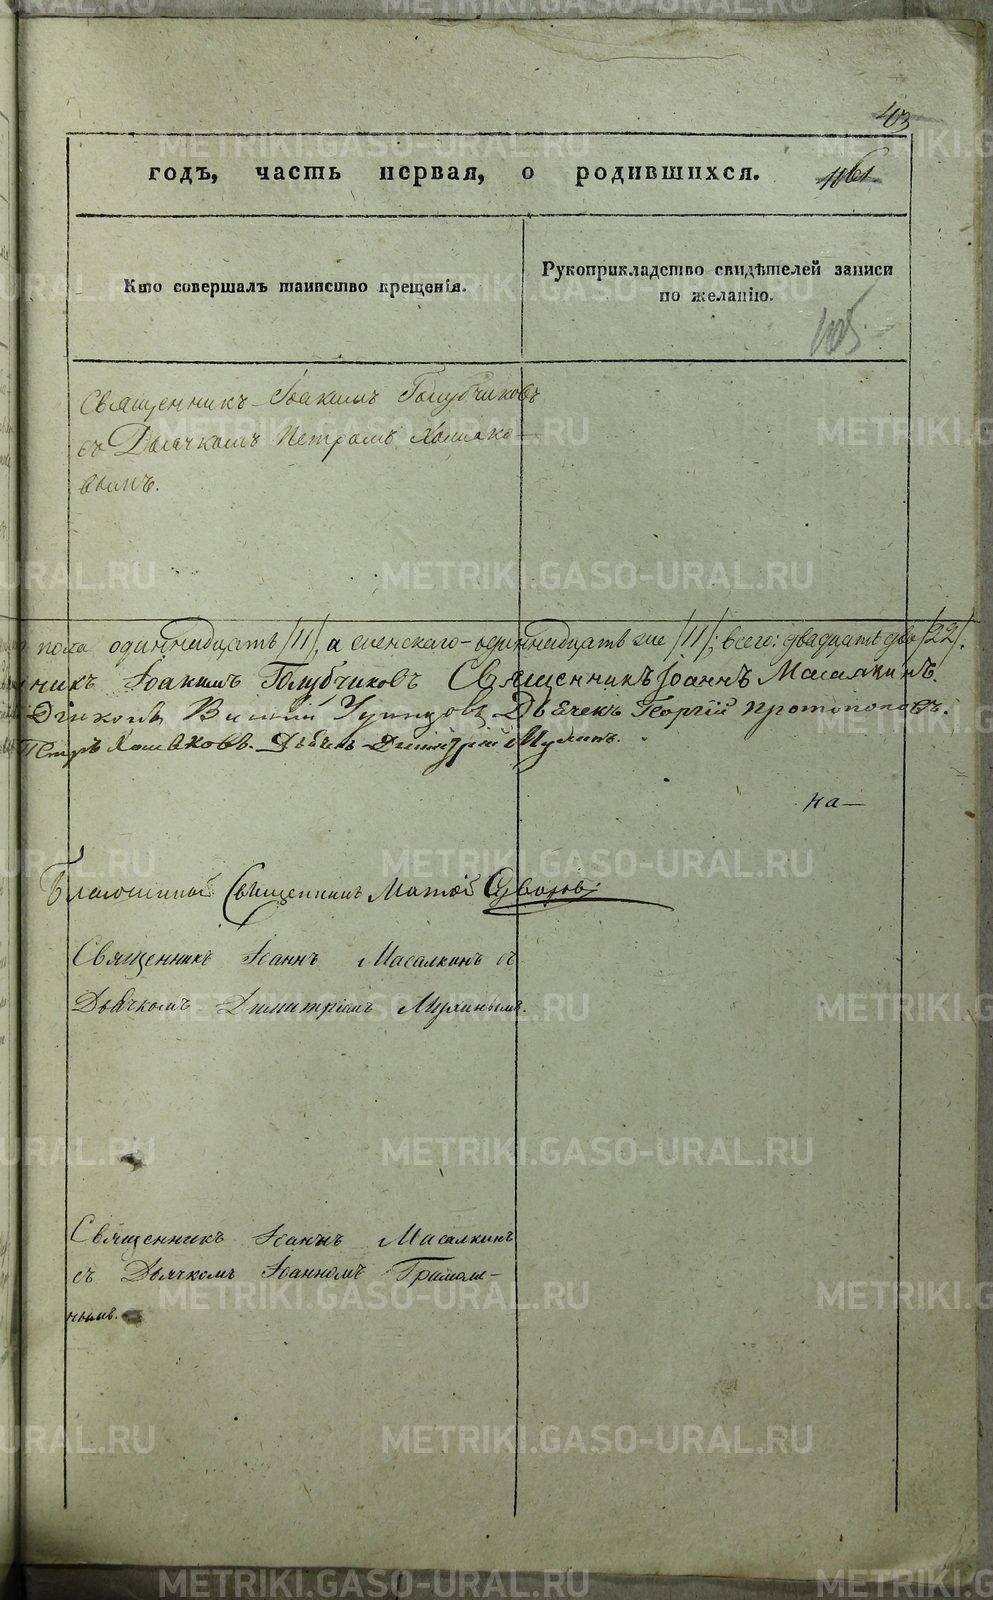 403
годъ, часть первая, о родившихся.
Кто совершалъ таинство крещенія.
Рукоприкладство свидѣтелей записи
по желанію.
Священникъ Іоакимъ Голубчиковъ
съ Дьячкомъ Петромъ Хомяко-
вымъ.
пола одиннадцать /11/, а женскаго - одиннадцать же /11/; всего: двадцать два /22/.
никъ Іоакимъ Голубчиковъ Священникъ Іоаннъ Масалкинъ.
Діяконъ Дьячекъ Георгій Протопоповъ.
Петръ Хомяковъ. Дьячекъ Димитрій
на
Благочинной Священникъ Матѳей Суворовъ
Священникъ Іоаннъ Масалкинъ съ
Дьячкомъ Димитріемъ
Священникъ Іоаннъ Масалкинъ
съ Дьячкомъ Іоанномъ
нымъ.
METRIKI.GASO-URAL.RU